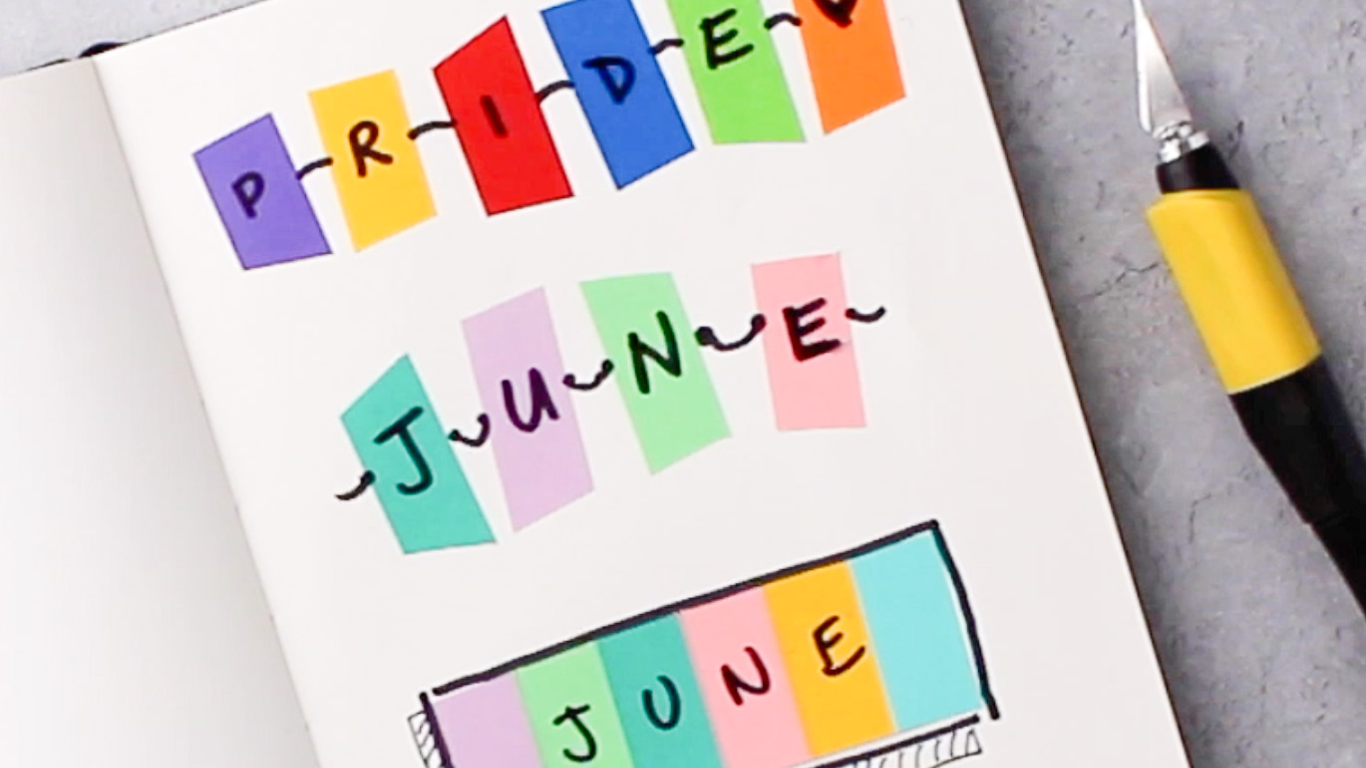 PRIDE
JUNE
JUNE